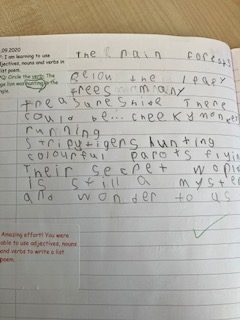 .09.2020
I am learning to use
adjectives, nouns and verbs in
list poem.
Circle the verb: The
lion was hunting in the
The rain forests
Below the leafy
trees many
treasures hide There
could be... cheeky monkeys
running
stripy tigers hunting
colourful parots flyin
Their secret world
is still a myster
and wonder to us
Amazing effort! You were
able to use adjectives, nouns
and verbs to write a list
poem.